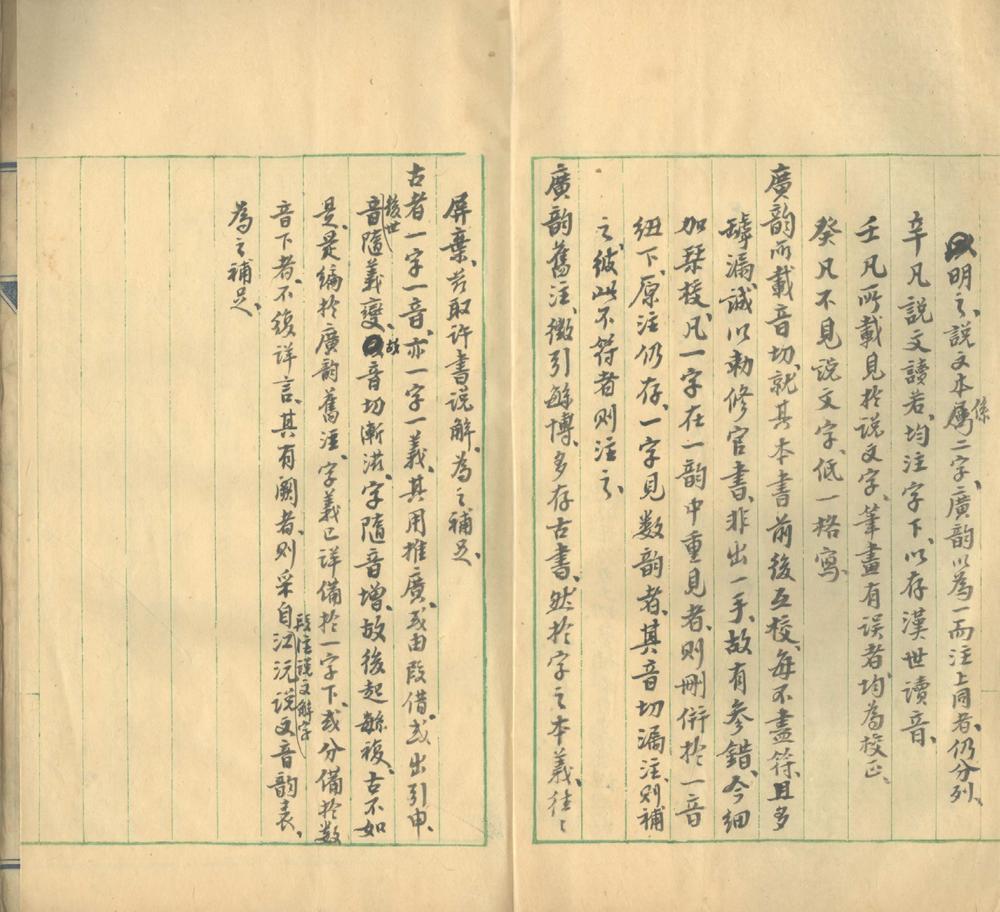 明之、說文本属係二字、廣韵以為一而注上同者、仍分列、
辛凡説文讀若、均注字下、以存漢世讀音、
壬凡所載見於説文字、筆畫有誤者、均為校正、
癸凡不見説文字、低一格寫、
廣韵所載音切、就其本書前後互校、每不盡符、且多
罅漏、誠以勅修官書、非出一手、故有參錯、今細
加栞挍、凡一字在一韵中重見者、則刪併於一音
紐下、原注仍存、一字見数韵者、其音切漏注、則補
之、彼此不符者則注之、
廣韵舊注、徵引緐博、多存古書、然於字之本義、往〻
屏棄、兹取許書説解、為之補足、
古者一字一音、亦一字一義、其用推廣、或由叚借、或出引申、
後世音隨義變、故音切漸滋、字隨音增、故後起緐複、古不如
是、是編於廣韵舊注、字義已詳備於一字下、或分備於数
音下者、不復詳言、其有闕者、則采自段注説文解字江沅説文音韵表、
為之補足、